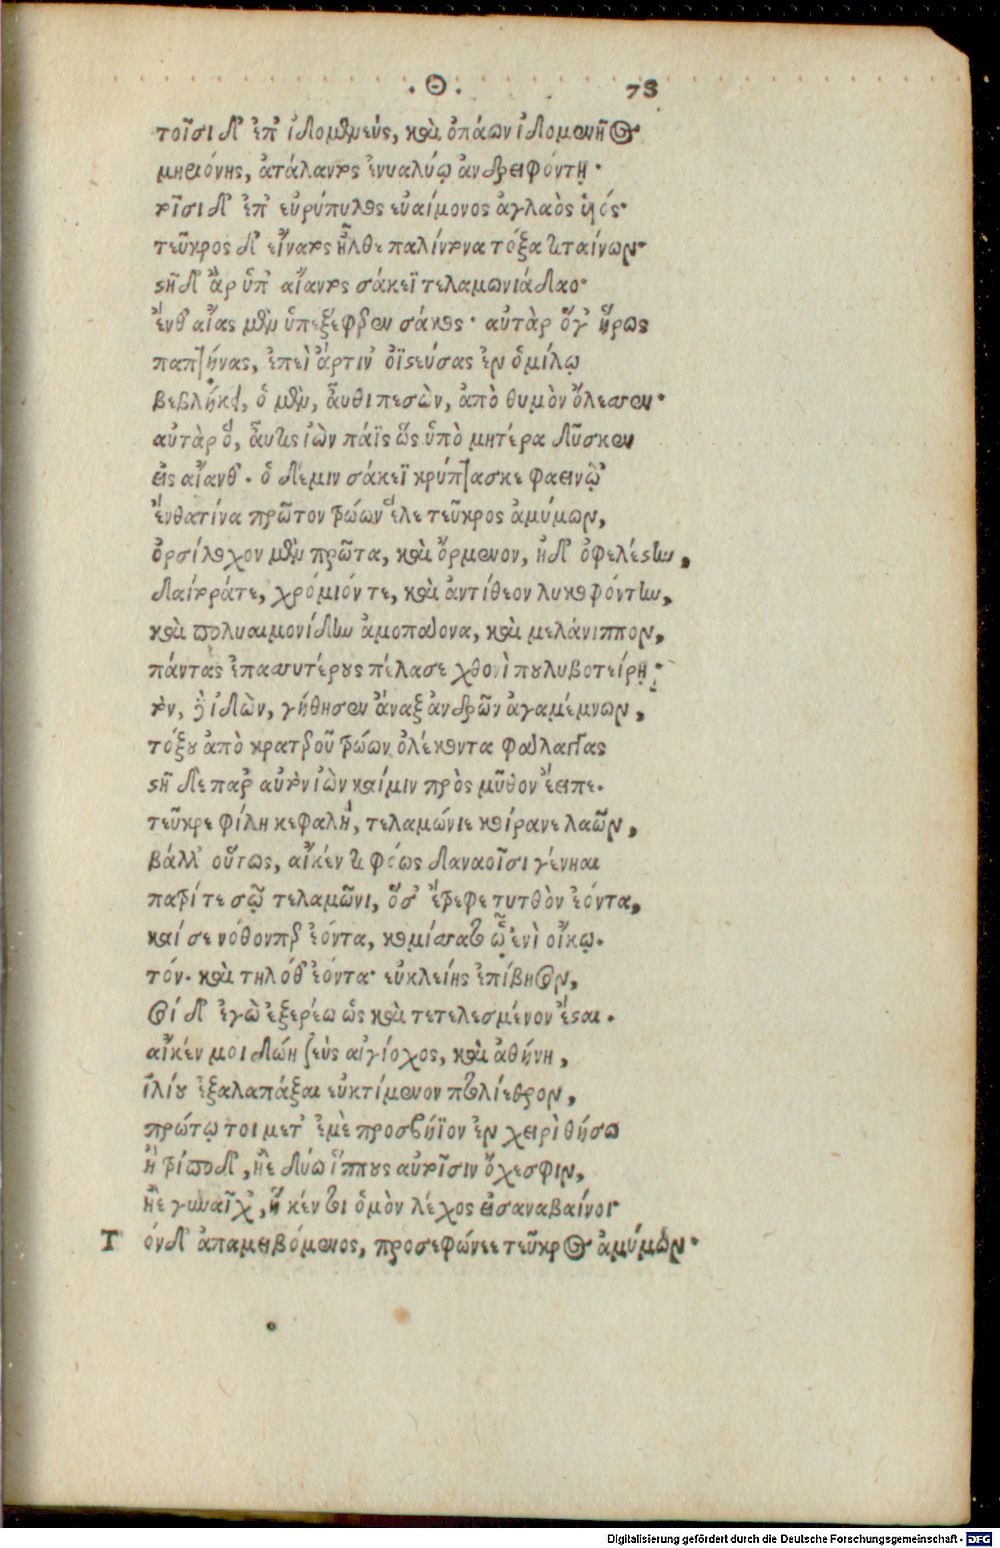 .Θ. 73
τοῖσι δ' ἐπ' ἰδομενεύς, καὶ ὀπάων ἰδομενῆος
μηριόνης, ἀτάλαντος ἐνυαλίῳ ἀνδρειφόντῃ·
τοῖσι δ' ἐπ' εὐρύπυλος εὐαίμονος ἀγλαὸς ὑιός·
τεῦκρος δ' εἴνατος ἦλθε παλίντονα τόξα τιταίνων·
στῆ δ' ἂρ ὑπ' αἴαντος σάκεϊ τελαμωνιάδαο·
ἔνθ' αἴας μὲν ὑπεξέφερεν σάκος· αὐτὰρ ὅγ' ἥρως
παπτήνας, ἐπεὶ ἄρτιν' ὀϊστεύσας ἐν ὁμίλῳ
βεβλήκει, ὁ μὲν, ἆυθι πεσὼν, ἀπὸ θυμὸν ὄλεσσεν·
αὐτὰρ ὁ, ἆυτις ἰὼν πάϊς ὣς ὑπὸ μητέρα δῦσκεν
εἰς αἴανθ'. ὁ δέ μιν σάκεϊ κρύπτασκε φαεινῷ
ἔνθα τίνα πρῶτον τρώων ἕλε τεῦκρος ἀμύμων,
ὀρσίλοχον μὲν πρῶτα, καὶ ὄρμενον, ἠδ' ὀφελέστην,
δαίτορά τε, χρόμιόν τε, καὶ ἀντίθεον λυκοφόντην,
καὶ πολυαιμονίδην ἀμοπάονα, καὶ μελάνιππον,
πάντας ἐπασσυτέρους πέλασε χθονὶ πουλυβοτείρῃ·
τὸν, δὲ ἰδὼν, γήθησεν ἄναξ ἀνδρῶν ἀγαμέμνων,
τόξου ἀπὸ κρατεροῦ τρώων ὀλέκοντα φάλαγγας
στῆ δὲ παρ' αὐτὸν ἰὼν καί μιν πρὸς μῦθον ἔειπε.
τεῦκρε φίλη κεφαλή, τελαμώνιε κοίρανε λαῶν,
βάλλ' οὕτως, αἴκέν τι φόως δαναοῖσι γένηαι
πατρί τε σῷ τελαμῶνι, ὅσ' ἔτρεφε τυτθὸν ἐόντα,
καί σε νόθον περ ἐόντα, κομίσσατο ᾧ ἐνὶ οἴκῳ.
τόν. καὶ τηλόθ' ἐόντα· εὐκλείης ἐπίβησον,
σοὶ δ' ἐγὼ ἐξερέω ὡς καὶ τετελεσμένον ἔσται.
αἴκέν μοι δώῃ ζεὺς αἰγίοχος, καὶ ἀθήνη,
ἰλίου ἐξαλαπάξαι εὐκτίμενον πτολίεθρον,
πρώτῳ τοι μετ' ἐμὲ πρεσβήϊον ἐν χειρὶ θήσω
ἢ τρίποδ', ἠὲ δύω ἵππους αὐτοῖσιν ὄχεσφιν,
ἠὲ γυναῖχ', ἥ κέν τοι ὁμὸν λέχος εἰσαναβαίνοι·
Τ όνδ' ἀπαμειβόμενος, προσεφώνεε τεῦκρος ἀμύμων·
Digitalisierung gefördert durch die Deutsche Forschungsgemeinschaft - DFG